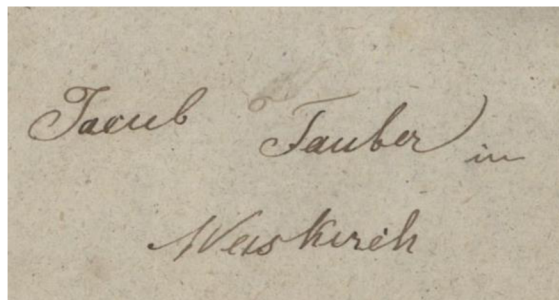 Jacub Tauber in
Weiskirch